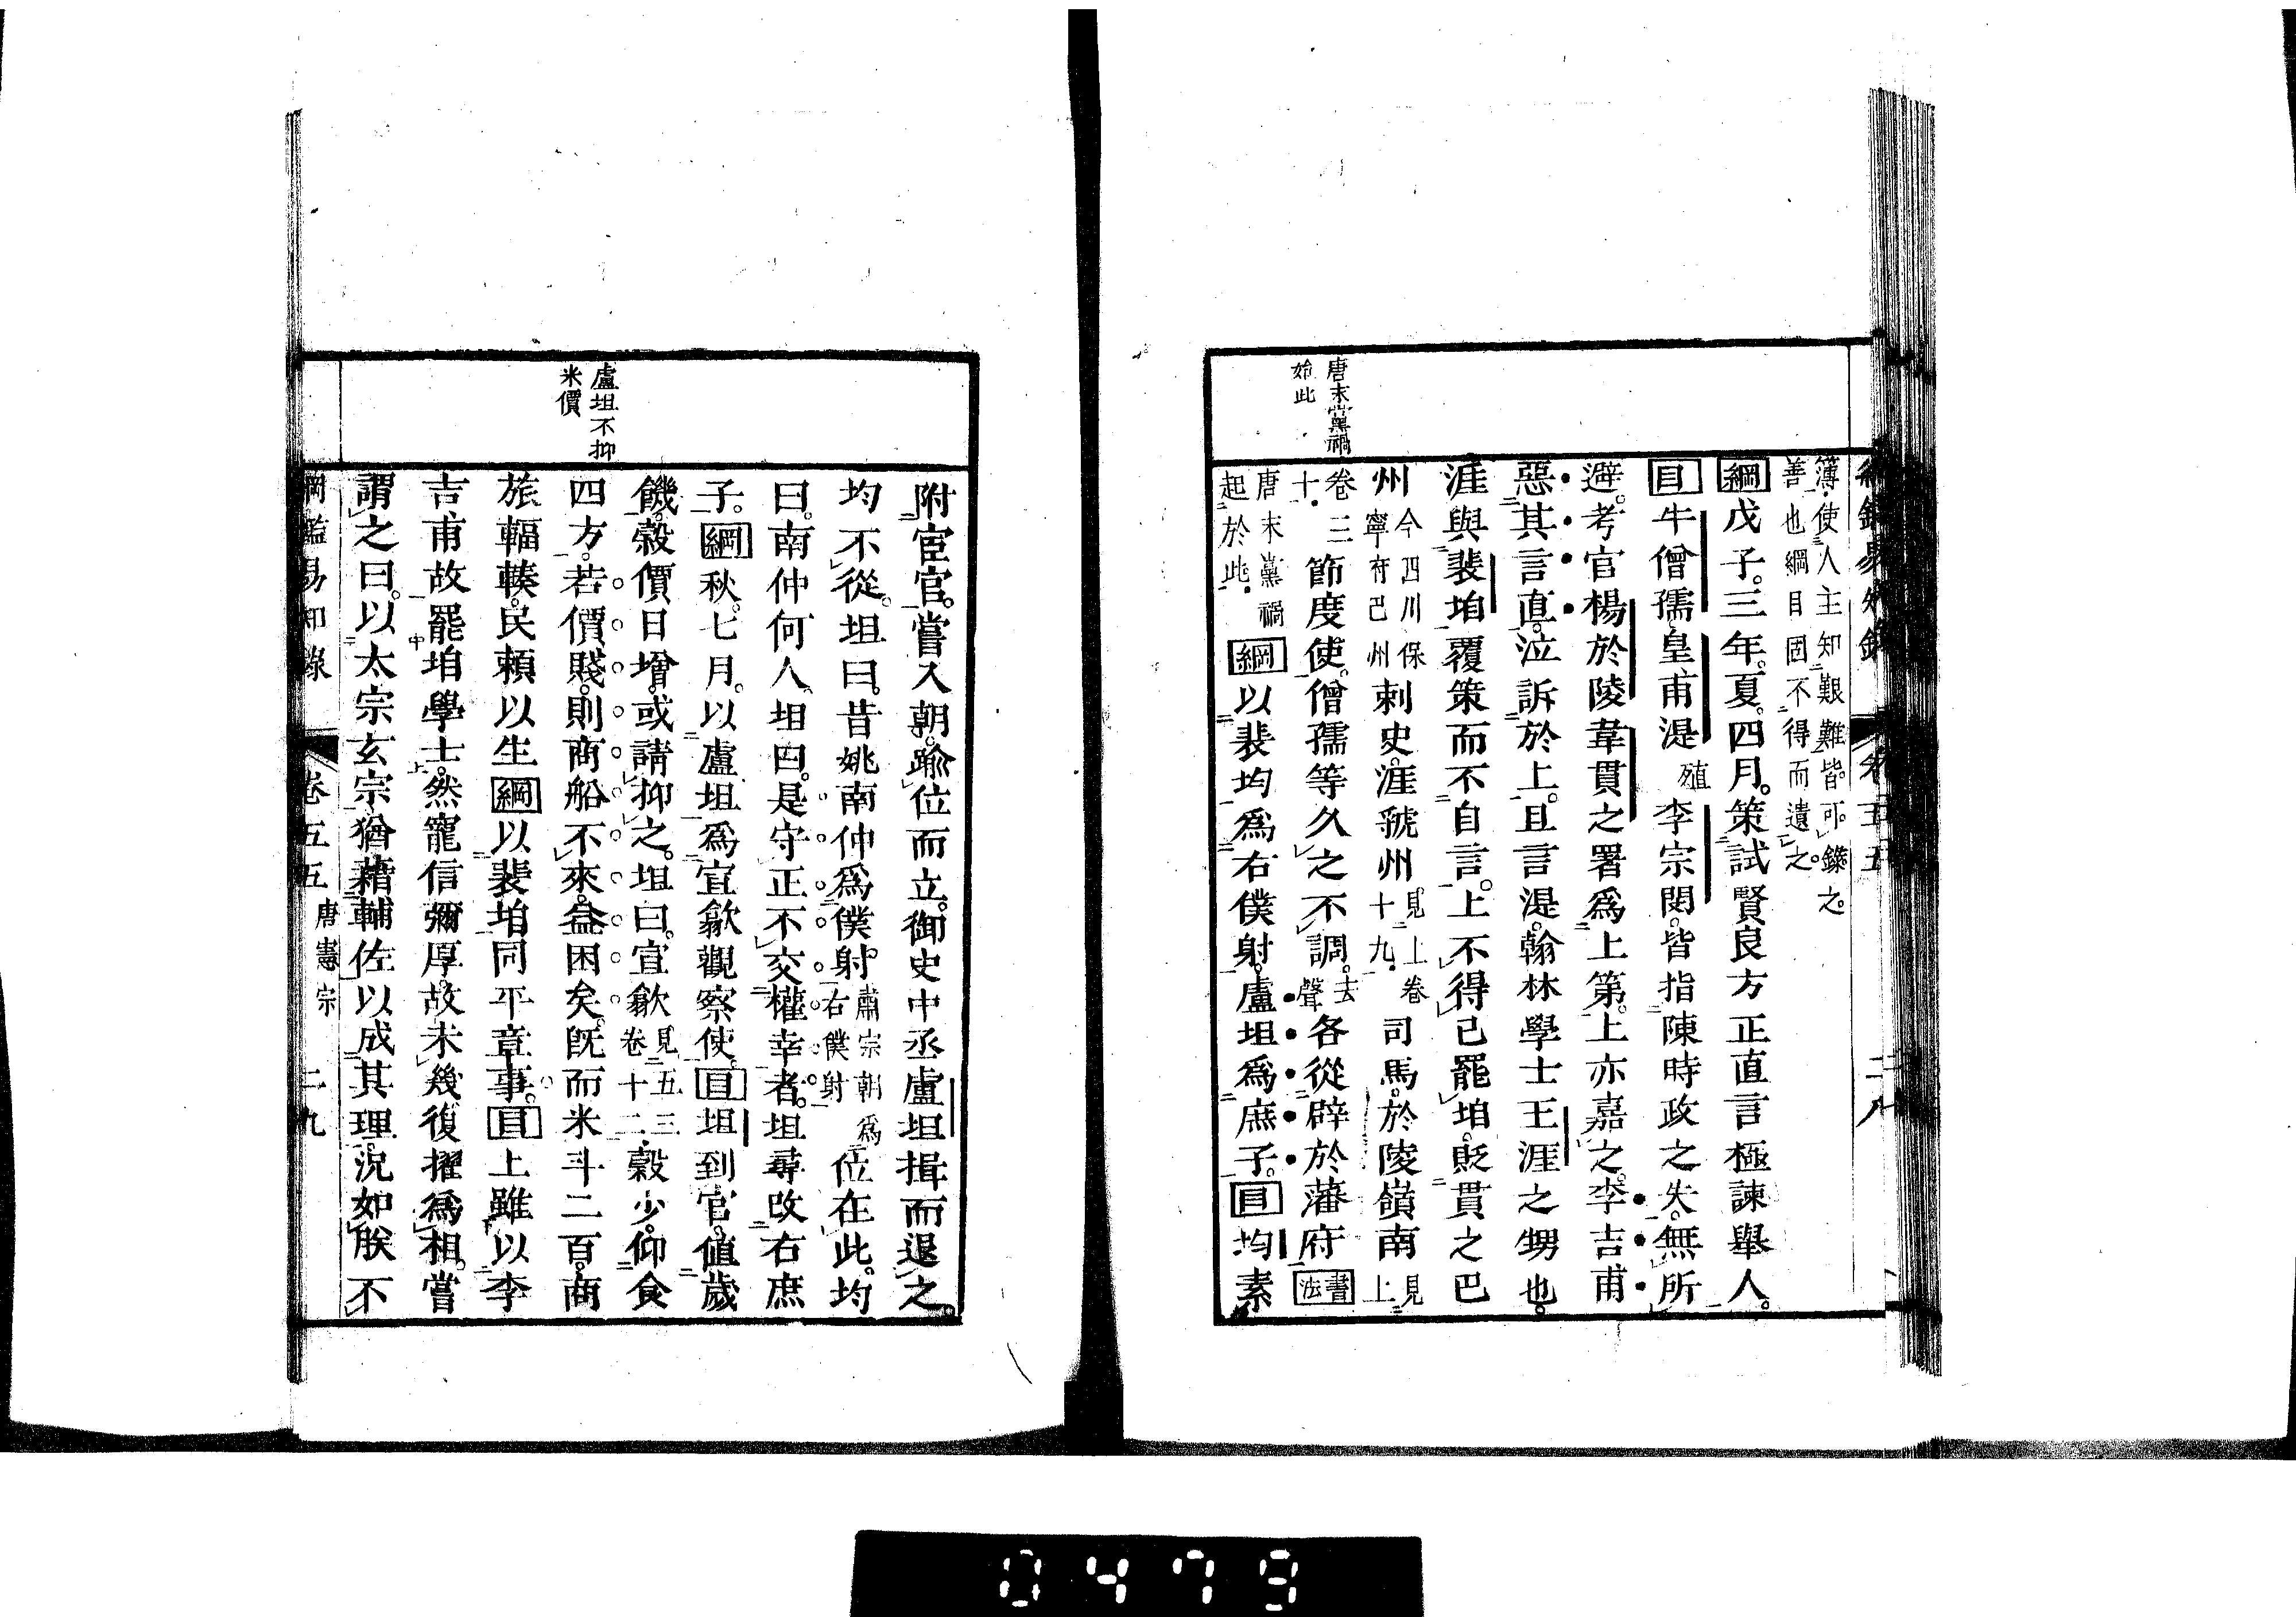 綱鑑易知錄 卷五五 二八
唐末黨禍
始此
簿使人主知艱難皆可錄之
善也綱目固不得而遺之
綱戊子。三年。夏。四月。策試賢良方正直言極諫舉人。
目牛僧孺。皇甫湜殖李宗閔。皆指陳時政之失。無所
避。考官楊於陵韋貫之署爲上第。上亦嘉之。李吉甫
惡其言直。泣訴於上。且言湜。翰林學士王涯之甥也。
涯與裴垍覆策而不自言。上不得已罷垍。貶貫之巴
州今四川保寧府巴州刺史。涯虢州見上卷十九司馬。於陵嶺南見上
卷三十節度使。僧孺等久之不調。去聲各從辟於藩府書法
唐末黨禍起於此綱以裴均爲右僕射。盧坦爲庶子。目均素
盧坦不抑
米價
附宦官。嘗入朝。踰位而立。御史中丞盧坦揖而退之。
均不從。坦曰。昔姚南仲爲僕射。肅宗朝爲右僕射位在此。均
曰。南仲何人。坦曰。是守正不交權幸者。坦尋改右庶
子。綱秋。七月。以盧坦爲宣歙觀察使。目坦到官。値歲
饑。穀價日增。或請抑之。坦曰。宣歙見五三卷十二穀少。仰食
四方。若價賤。則商船不來。益困矣。旣而米斗二百。商
旅輻輳。民賴以生綱以裴垍同平章事。目上雖以李
吉甫故罷垍學士。然寵信彌厚。故未幾復擢爲相。嘗
謂之曰。以太宗玄宗。猶藉輔佐以成其理。況如朕不
綱鑑易知錄 卷五五 唐憲宗 二九
0479